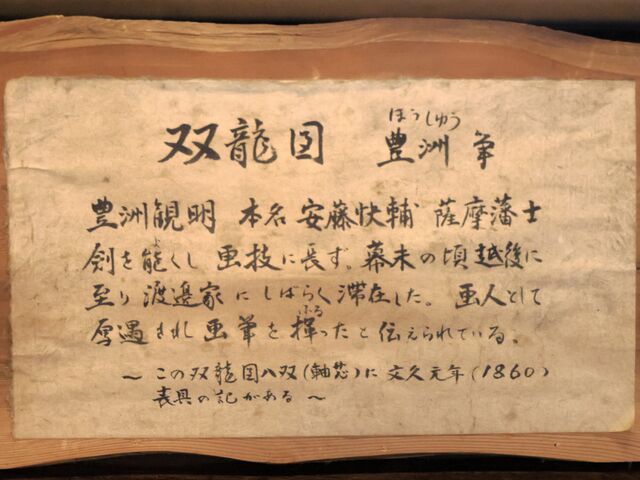 双龍図 豊洲筆
ほうしゅう
豊洲観明 本名 安藤快輔 薩摩藩士
剣を能くし 画技に長ず。幕末の頃越後に
よ
至り 渡邉家にしばらく滞在した。画人として
厚遇され画筆を揮ったと伝えられている。
ふる
～この双龍図八双(軸芯)に文久元年(1860)
表具の記がある～